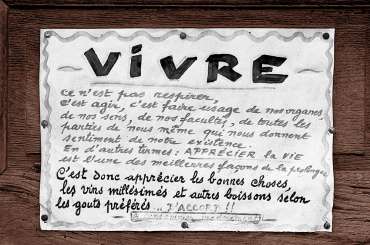 ViVRE
ce n'est pas respirer,
C'est agir, c'est faire usage de nos organes,
de nos sens, de nos facultés, de toutes les
parties de nous même qui nous donnent
sentiment de notre existence.
En d'autres termes: APPRÉCIER la ViE
est l'une des meilleures façons de la prolonger
C'est donc apprécier les bonnes choses,
les vins millésimés et autres boissons selon
les goûts préférés... J'ACCEPT !!
à consommer modérément